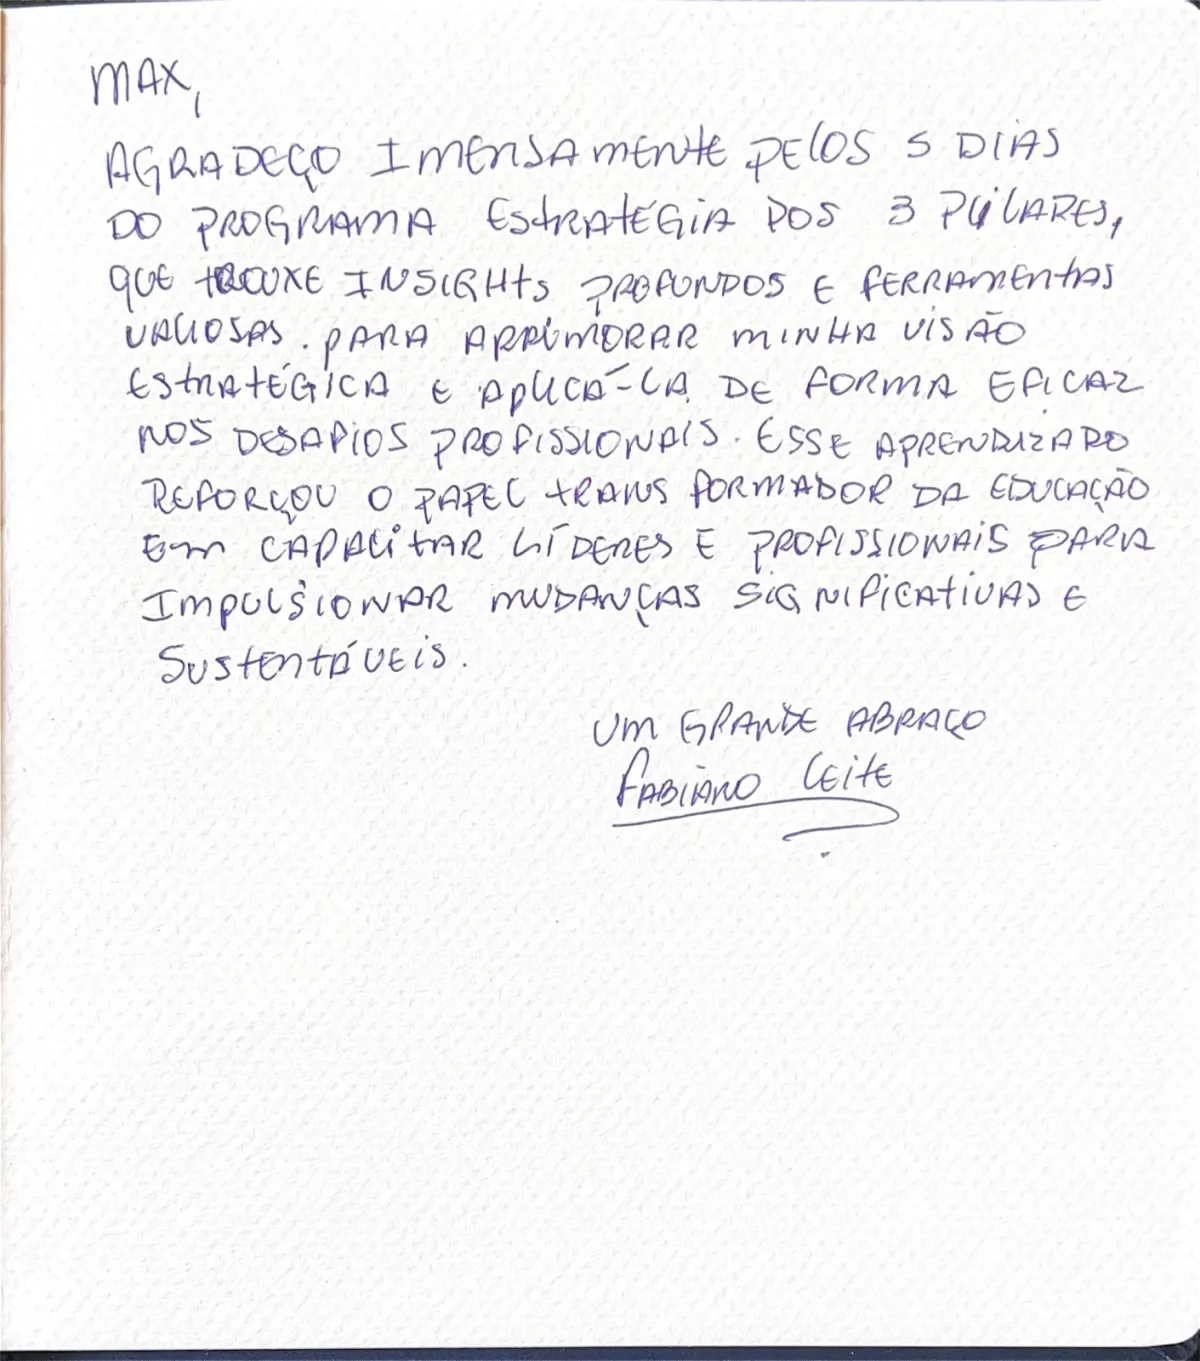 MAX,
AGRADEÇO IMENSAMENTE PELOS 5 DIAS
DO PROGRAMA ESTRATÉGIA DOS 3 PILARES,
QUE TROUXE INSIGHTS PROFUNDOS E FERRAMENTAS
VALIOSAS. PARA APRIMORAR MINHA VISÃO
ESTRATÉGICA E APLICÁ-LA DE FORMA EFICAZ
NOS DESAFIOS PROFISSIONAIS. ESSE APRENDIZADO
REFORÇOU O PAPEL TRANSFORMADOR DA EDUCAÇÃO
EM CAPACITAR LÍDERES E PROFISSIONAIS PARA
IMPULSIONAR MUDANÇAS SIGNIFICATIVAS E
SUSTENTÁVEIS.
UM GRANDE ABRAÇO
FABIANO LEITE